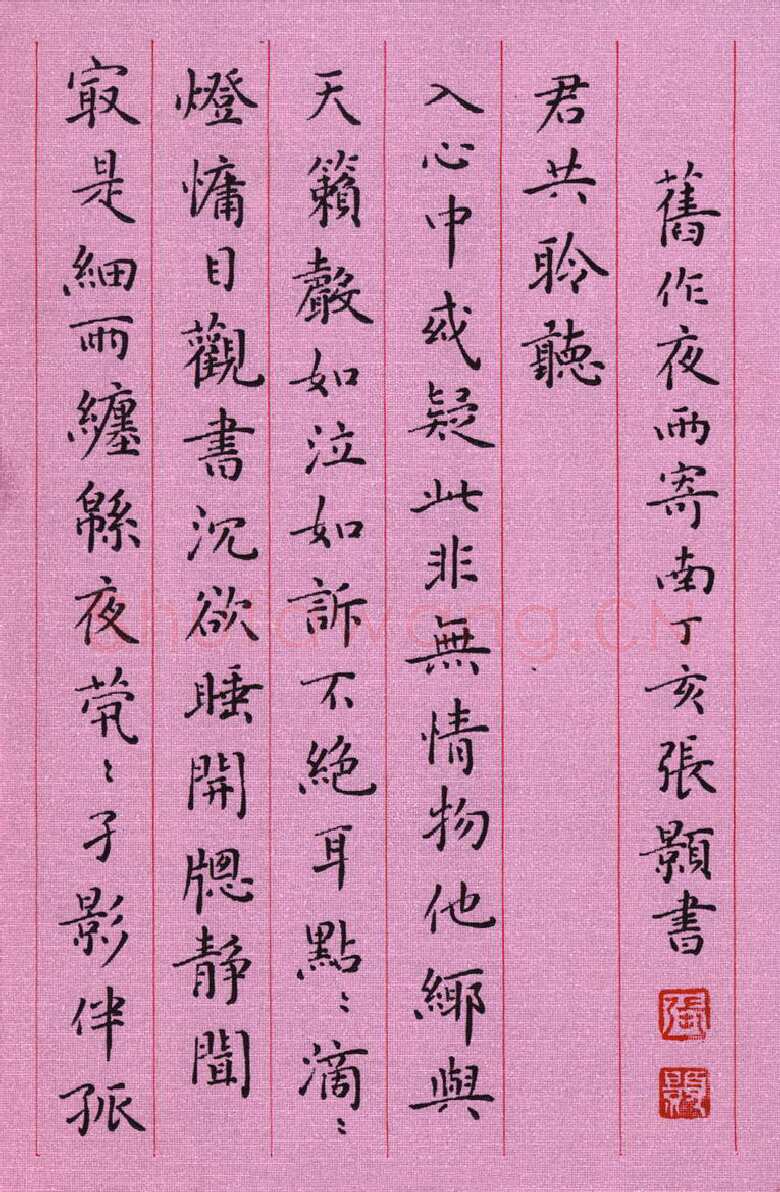 㝡是細雨纏緜夜煢〻孑影伴孤
燈慵目觀書沉欲睡開牕靜聞
天籟聲如泣如訴不絕耳點〻滴〻
入心中或疑此非無情物他鄉與
君共聆聽
舊作夜雨寄南丁亥張顥書
張
顥
shufawang.CN